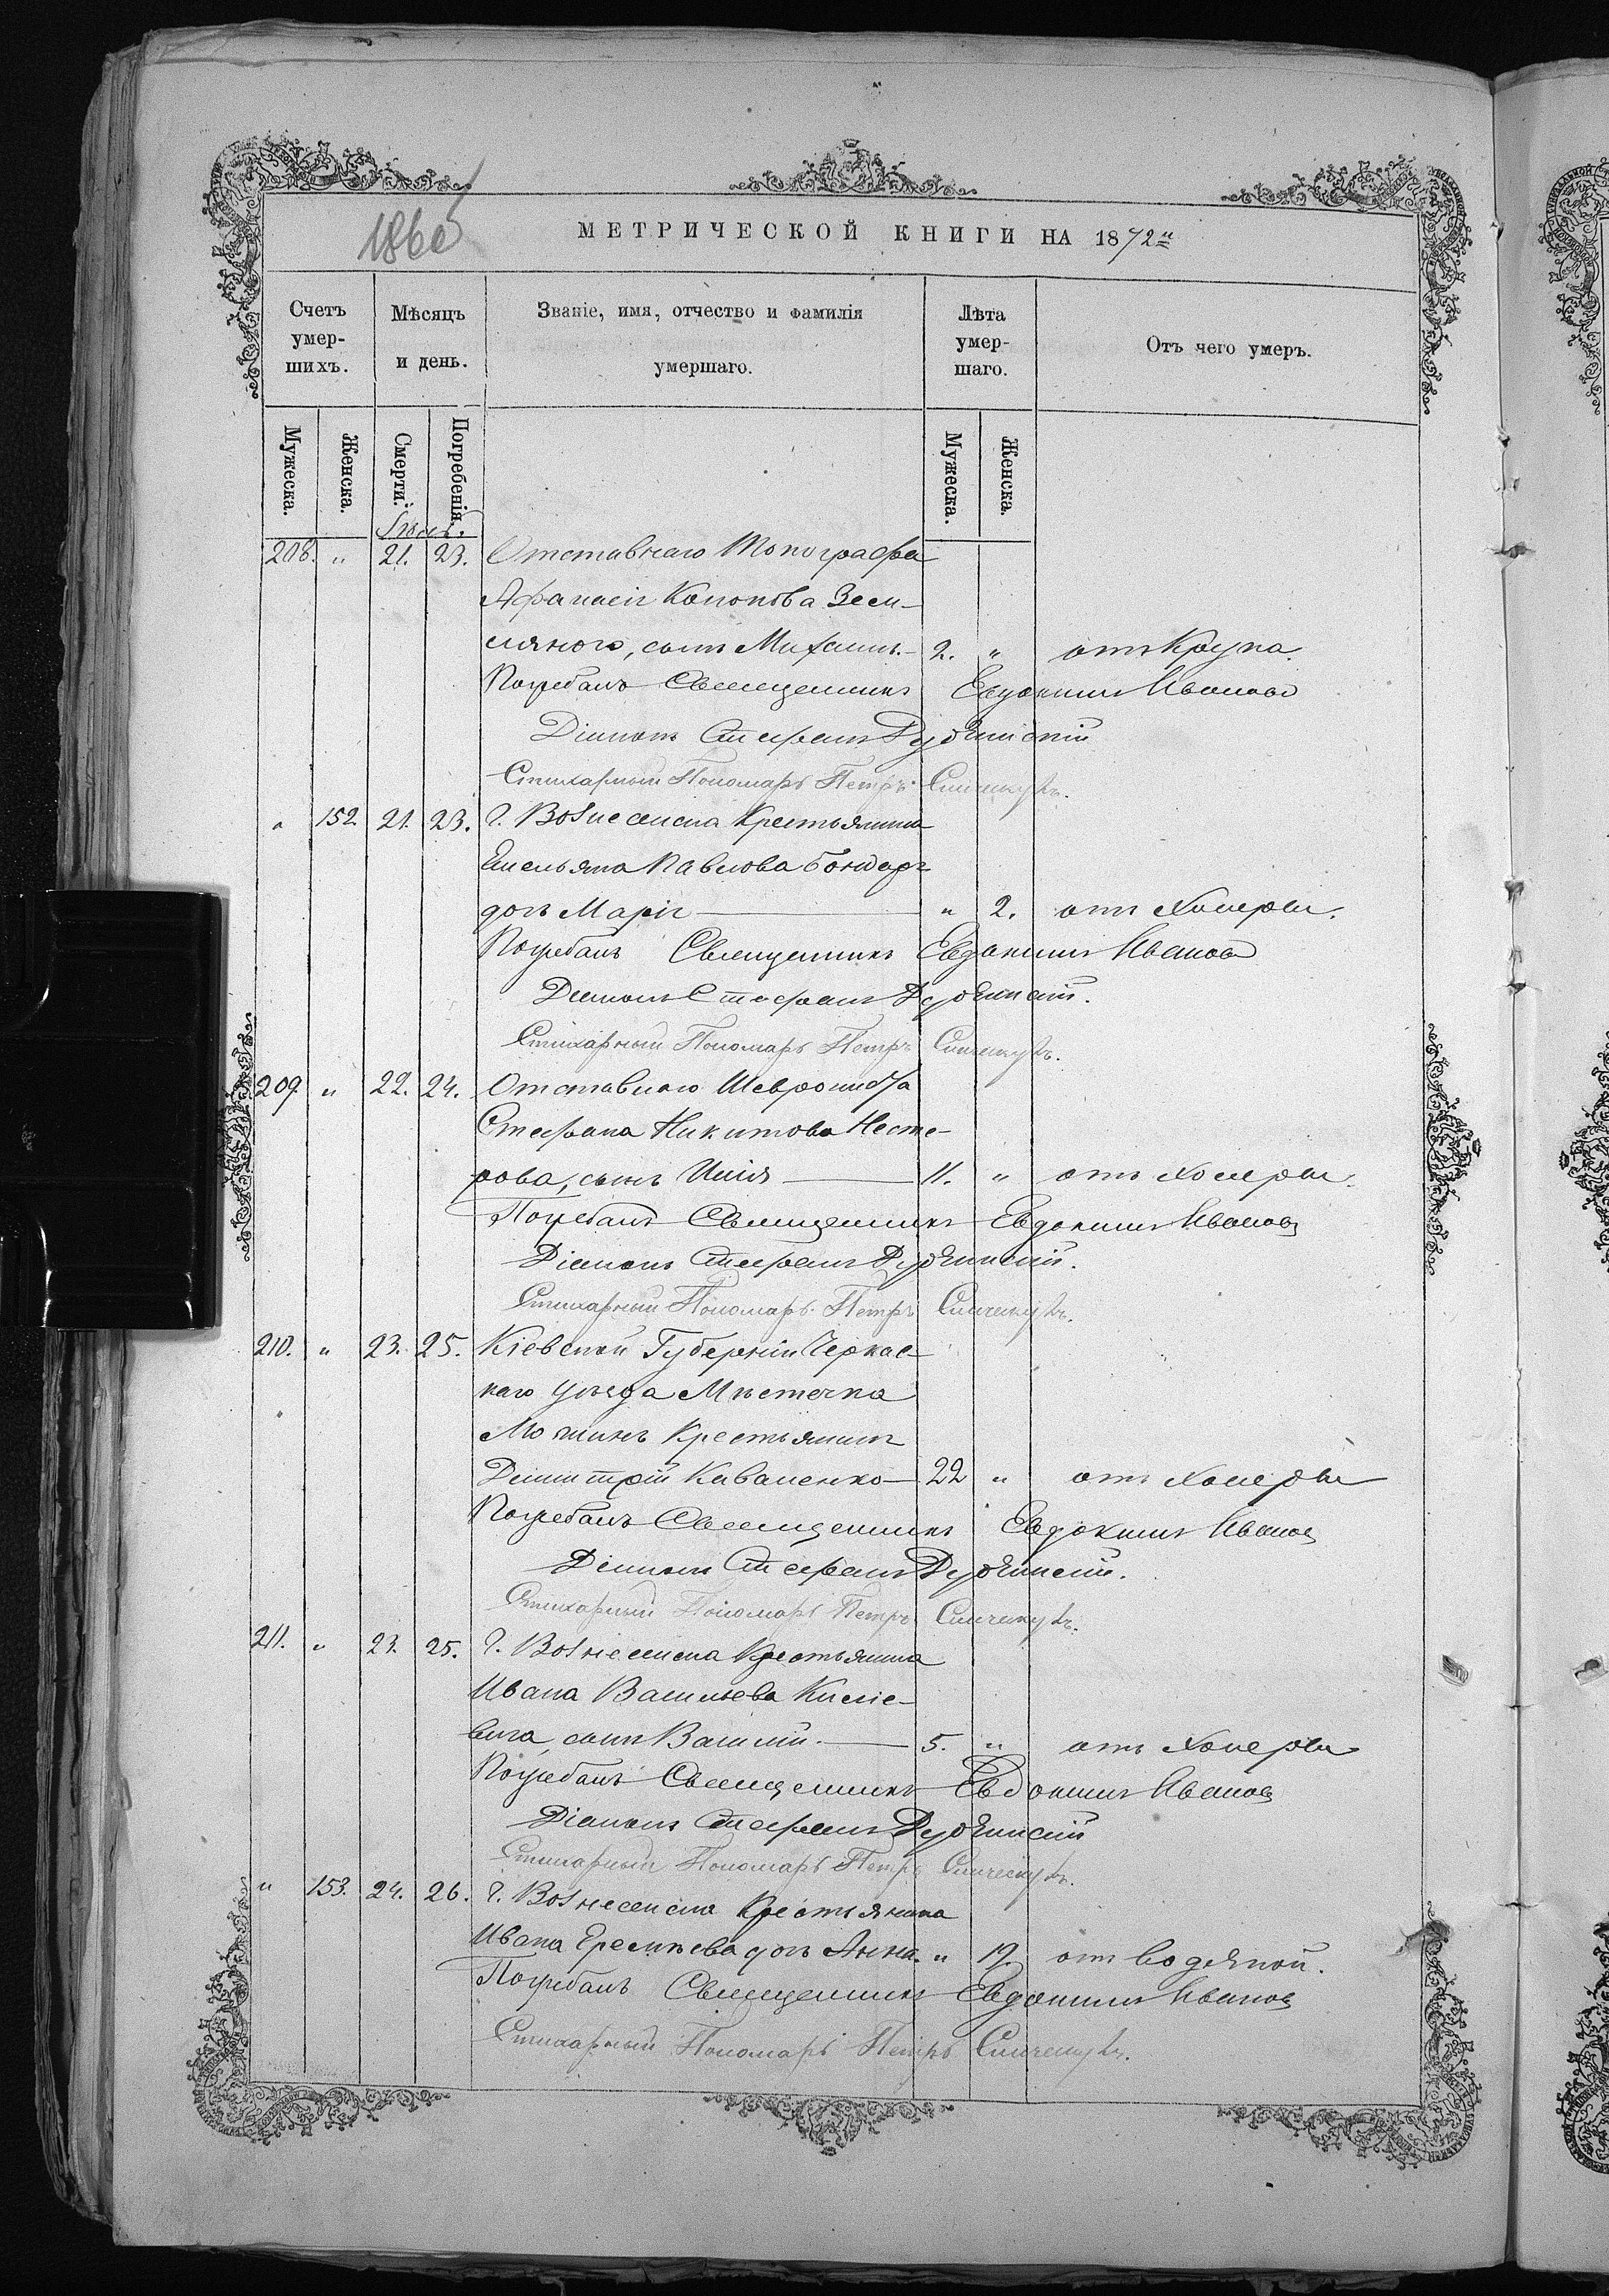 МЕТРИЧЕСКОЙ КНИГИ НА 1872
Счетъ умершихъ.
Мѣсяцъ и день.
Званіе, имя, отчество и фамилія умершаго.
Лѣта умершаго.
Отъ чего умеръ.
Мужеска. Женска. Смерти. Погребенія. Мужеска. Женска.
208. " 21. 23. Отставнаго Топографа
Афанасія Кононова Зем-
ляного, сынъ Михаилъ. 2. " отъ Крупа.
Погребалъ Священникъ Евдокимъ Ивановъ
Діаконъ Стефанъ
Стихарный Пономарь Петръ
" 152 21. 23. г. Вознесенска Крестьянина
Емельяна Павлова Бондаря
дочь Марія " 2. отъ Холеры.
Погребалъ Священникъ Евдокимъ Ивановъ
Діаконъ Стефанъ
Стихарный Пономарь Петръ
209 " 22. 24. Отставнаго
Стефана Никитова Несте-
рова, сынъ Илія 11. " отъ Холеры.
Погребалъ Священникъ Евдокимъ Ивановъ
Діаконъ Стефанъ
Стихарный Пономарь Петръ
210. " 23. 25. Кіевской Губерніи Черкас-
каго уѣзда Мѣстечка
Крестьянинъ
Димитрій Коваленко 22 " отъ Холеры
Погребалъ Священникъ Евдокимъ Ивановъ
Діаконъ Стефанъ
Стихарный Пономарь Петръ
211. " 23. 25. г. Вознесенска Крестьянина
Ивана Васильева
вича, сынъ Василій. 5. " отъ Холеры
Погребалъ Священникъ Евдокимъ Ивановъ
Діаконъ Стефанъ
Стихарный Пономарь Петръ
" 153. 24. 26. г. Вознесенска Крестьянина
Ивана Еремѣева дочь Анна. " 19. отъ водяной.
Погребалъ Священникъ Евдокимъ Ивановъ
Стихарный Пономарь Петръ